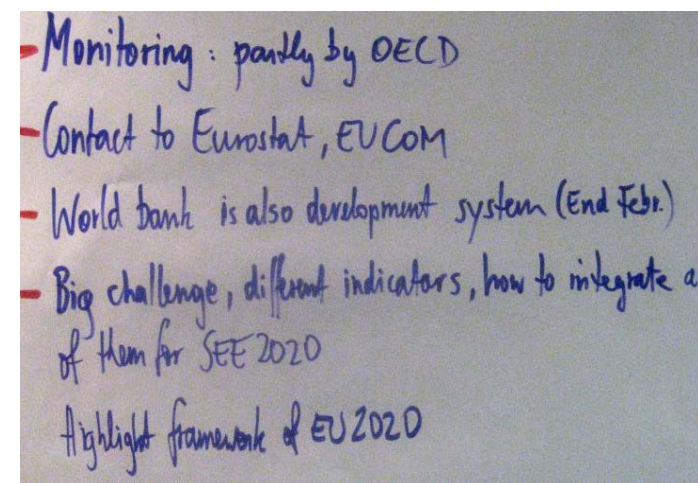 - Monitoring : partly by OECD
- Contact to Eurostat, EUCOM
- World bank is also development system (End Febr.)
- Big challenge, different indicators, how to integrate a
of them for SEE 2020
Highlight framework of EU2020